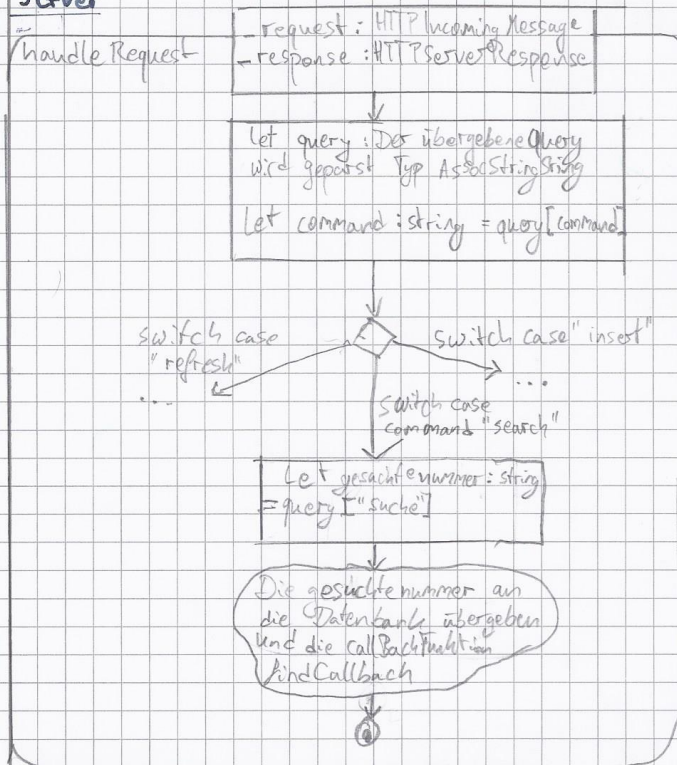 Server
handleRequest
_request: HTTPIncomingMessage
_response: HTTPServerResponse
let query: Der übergebene Query
wird geparst Typ AssocStringString
let command: string = query[command]
switch case
"refresh"
...
switch case "insert"
...
switch case
command "search"
Let gesuchtenummer: string
= query["suche"]
Die gesuchtenummer an
die Datenbank übergeben
und die callBackfunktion
findCallback